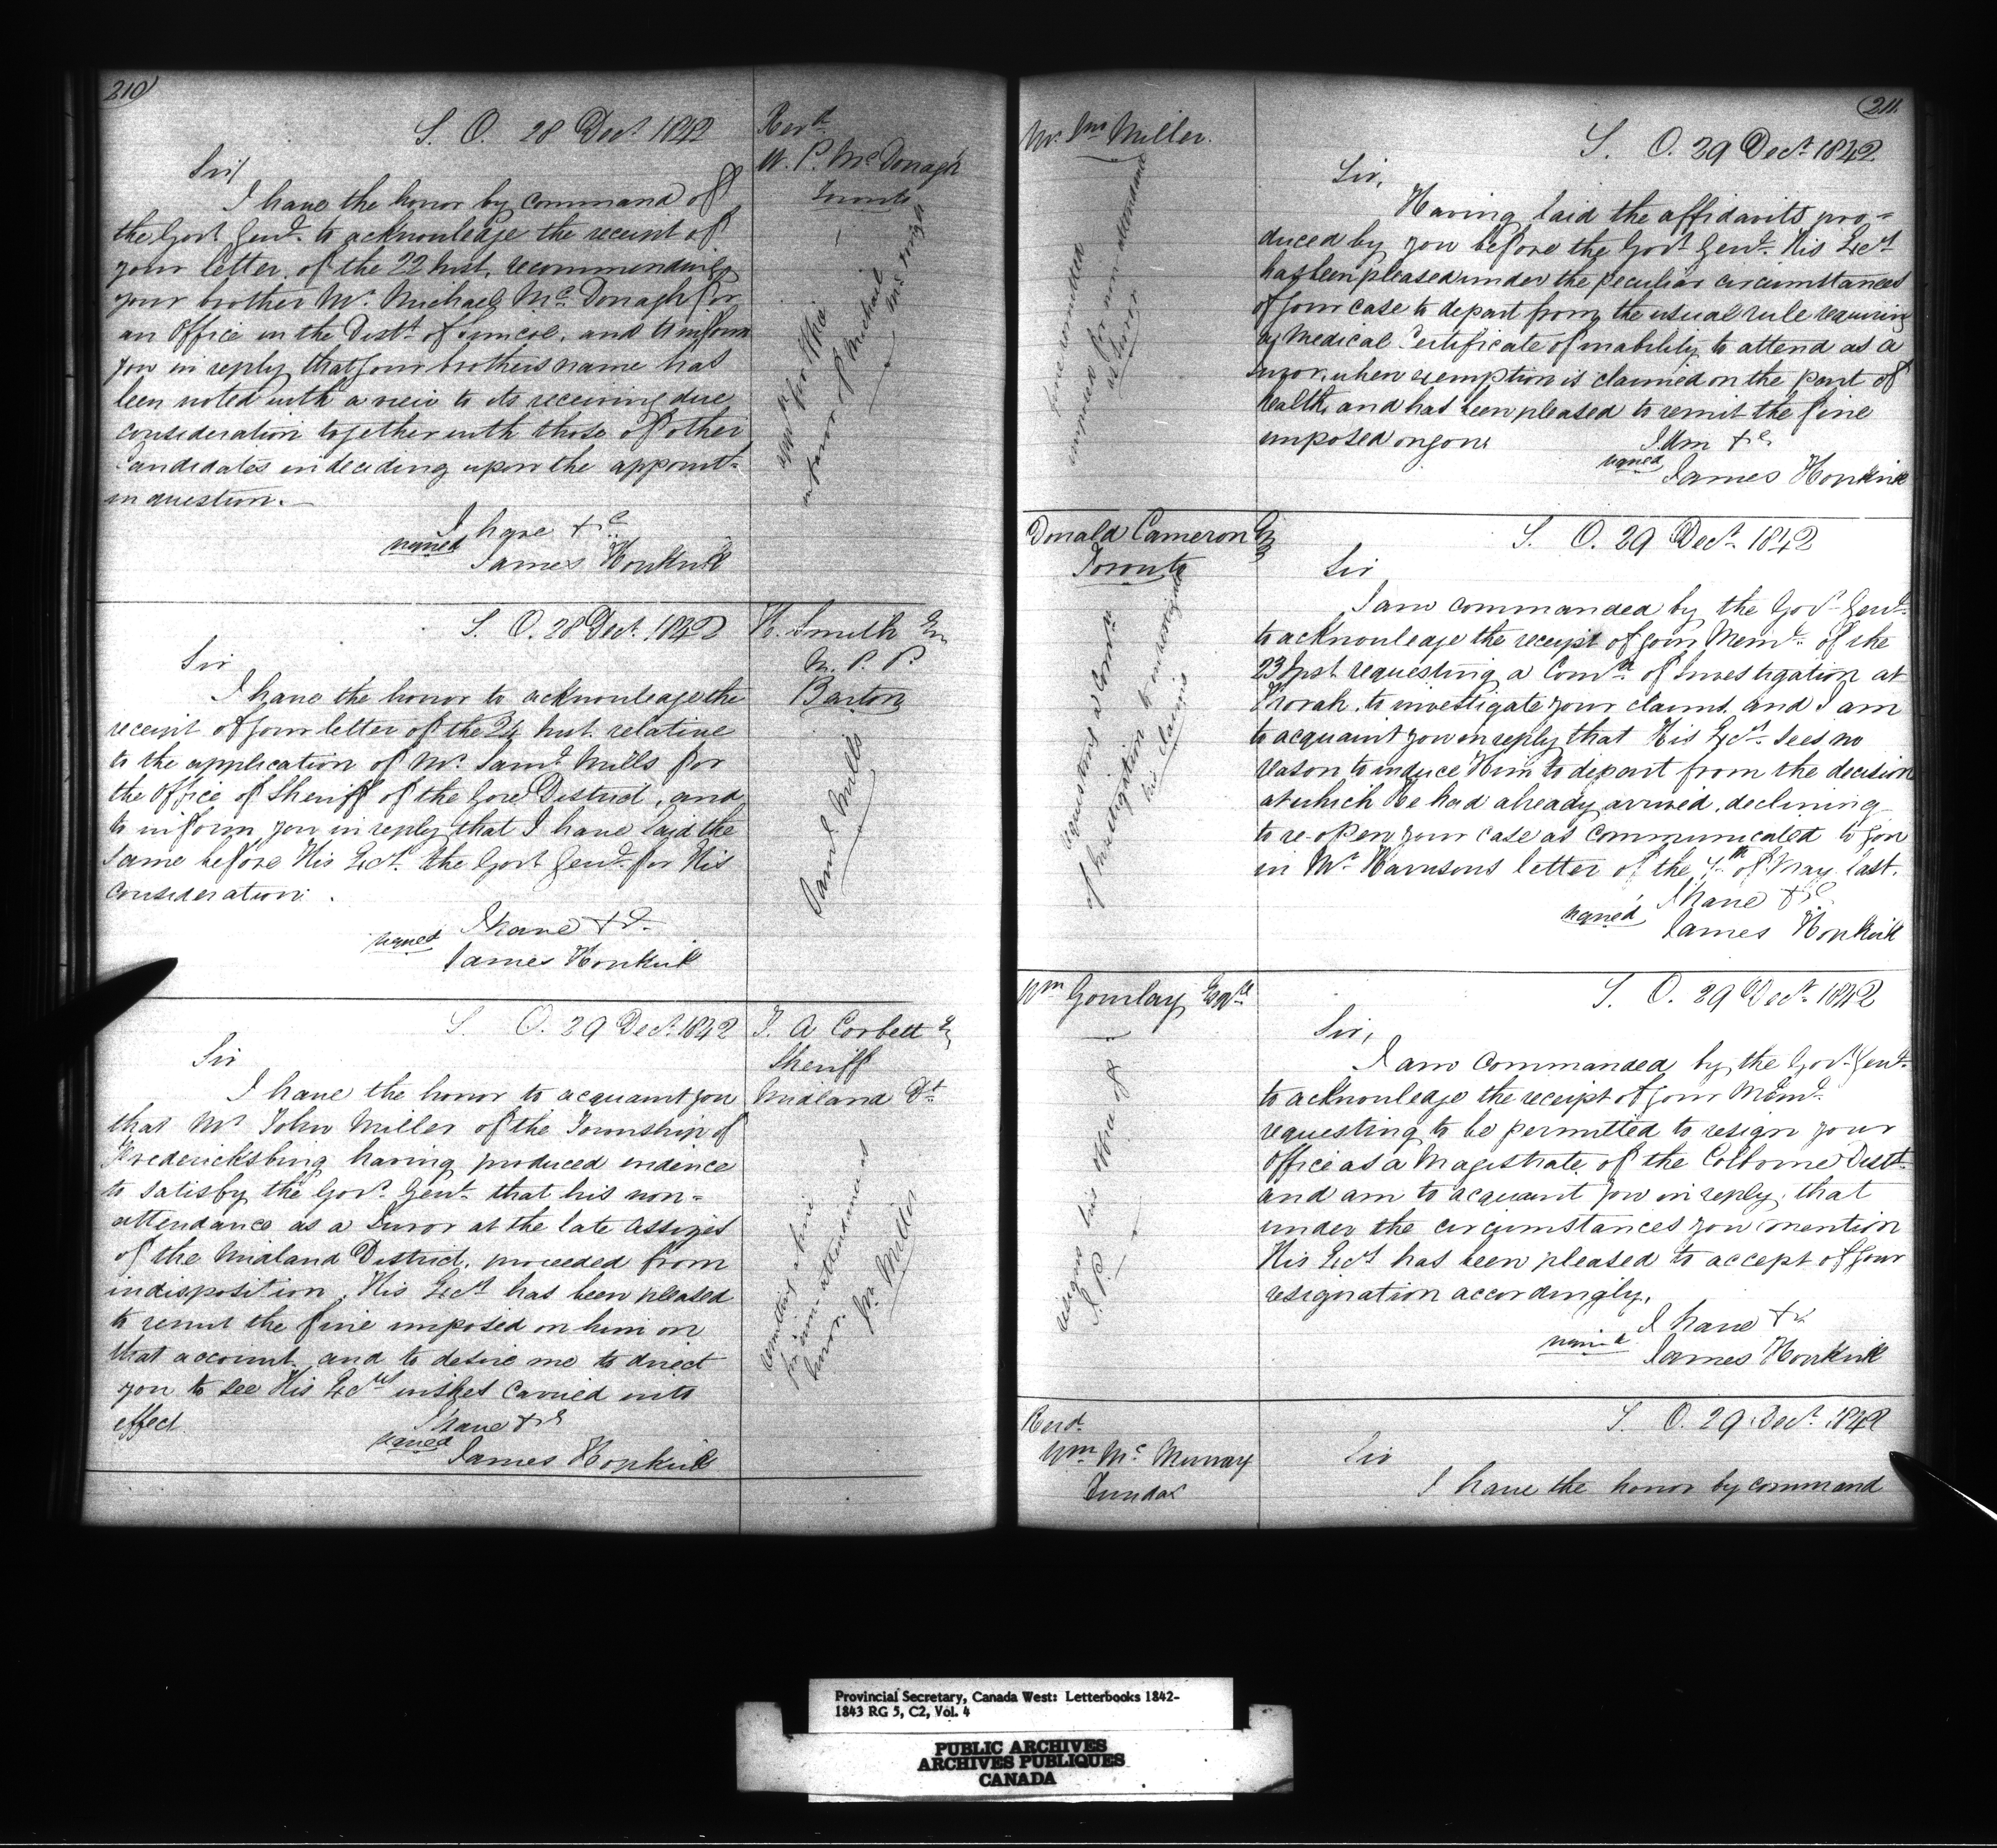 210
S. O. 28 Decr. 1842
Sir/
I have the honor by command of
the Govr Genl. to acknowledge the receipt of
your letter, of the 22 Inst, recommending
your brother Mr. Michael Mc Donagh for
an Office in the Distt. of Simcoe, and to inform
you in reply that your brothers name has
been noted with a view to its receiving due
consideration together with those of other
Candidates in deciding upon the appoint-
in question. —
I have &c
signed
James Hopkirk
Revd.
W. P. Mc Donagh
Toronto
appn for Office
in favor of Michael
Mc Donagh
S. O. 28 Decr. 1842
Sir
I have the honor to acknowledge the
receipt of your letter of the 24 Inst. relative
to the application of Mr. Saml. Mills for
the Office of Sheriff of the Gore District, and
to inform you in reply that I have laid the
same before His Excy. the Govr Genl. for His
consideration.
I have &c
signed
James Hopkirk
H. Smith Esq
M. P. P.
Barton
Saml Mills
S. O. 29 Decr. 1842
Sir
I have the honor to acquaint you
that Mr John Miller of the Township of
Fredericksburg having produced evidence
to satisfy the Govr. Genl. that his non-
attendance as a Juror at the late Assizes
of the Midland District, proceeded from
indisposition, His Excy has been pleased
to remit the fine imposed on him on
that account, and to desire me to direct
you to see His Excys wishes carried into
effect
I have &c
signed
James Hopkirk
T. A Corbett Esq
Sheriff
Midland Dt.
remitting a fine
for non attendance as
Juror. Jn. Miller
211
Mr. Jno Miller.
fine remitted
imposed for non attendance
as Juror
S. O. 29 Decr. 1842
Sir,
Having laid the affidavits pro-
duced by you before the Govr. Genl. His Excy
has been pleased under the peculiar circumstances
of your case to depart from the usual rule requiring
a Medical Certificate of inability to attend as a
Juror, when exemption is claimed on the part of
health, and has been pleased to remit the fine
imposed on you.
I Am &c
signed
James Hopkirk
Donald Cameron Esq
Toronto
requesting a Comn
of Investigation to investigate
his claims
S. O. 29 Decr. 1842
Sir
I am commanded by the Govr. Genl.
to acknowledge the receipt of your Meml. of the
23 Inst requesting a Comn of Investigation at
Thorah, to investigate your claims, and I am
to acquaint you in reply that His Excy. sees no
reason to induce Him to depart from the decision
at which he had already arrived, declining
to re-open your case as communicated to you
in Mr Harrisons letter of the 4th of May last.
I have &c
signed
James Hopkirk
Wm Gourlay Esqre
resigns his Office of
J. P.
S. O. 29 Decr. 1842
Sir,
I am commanded by the Govr. Genl.
to acknowledge the receipt of your Meml.
requesting to be permitted to resign your
Office as a Magistrate of the Colborne Distt.
and am to acquaint you in reply, that
under the circumstances you mention
His Excy has been pleased to accept of your
resignation accordingly.
I have &c
signed
James Hopkirk
Revd.
Wm. Mc Murray
Dundas
S. O. 29 Decr. 1842
Sir
I have the honor by command
Provincial Secretary, Canada West: Letterbooks 1842-
1843 RG 5, C2, Vol. 4
PUBLIC ARCHIVES
ARCHIVES PUBLIQUES
CANADA